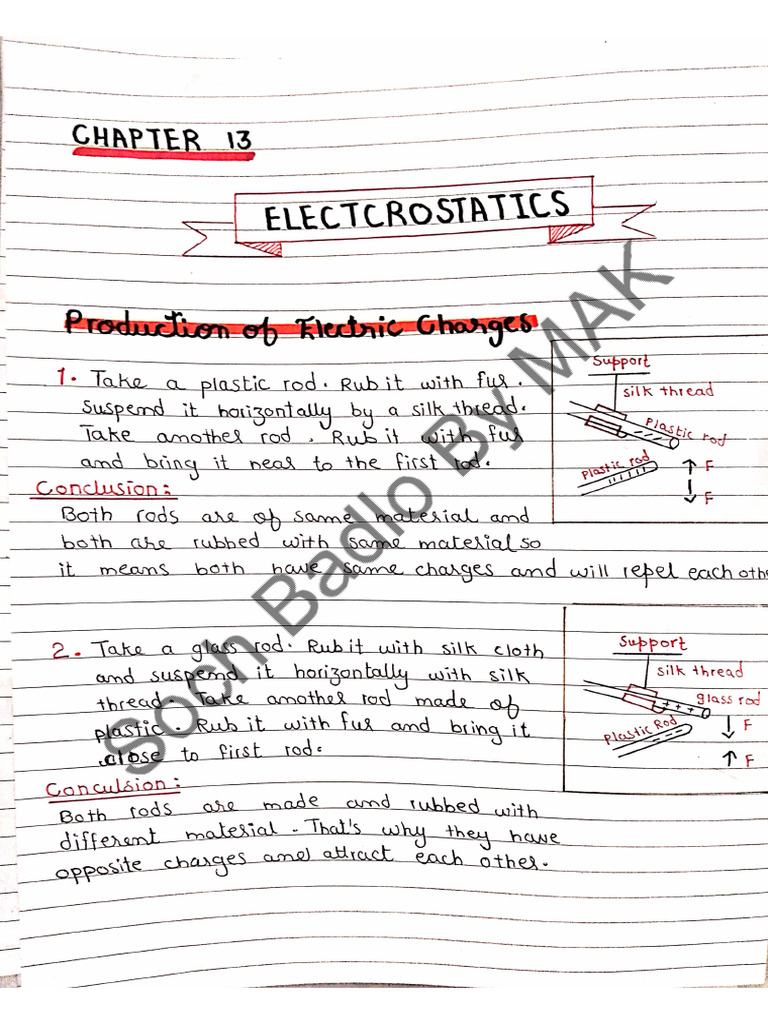 CHAPTER 13
ELECTCROSTATICS
Production of Electric Charges
1. Take a plastic rod. Rub it with fur.
suspend it horizontally by a silk thread.
Take another rod. Rub it with fur
and bring it near to the first rod.
Support
silk thread
Plastic rod
Plastic rod
F
F
Conclusion:
Both rods are of same material and
both are rubbed with same material so
it means both have same charges and will repel each othe
2. Take a glass rod. Rub it with silk cloth
and suspend it horizontally with silk
thread. Take another rod made of
plastic. Rub it with fur and bring it
close to first rod.
Support
silk thread
glass rod
+ + +
Plastic Rod
F
F
Conculsion:
Both rods are made and rubbed with
different material. That's why they have
opposite charges and attract each other.
Soch Badlo By MAK